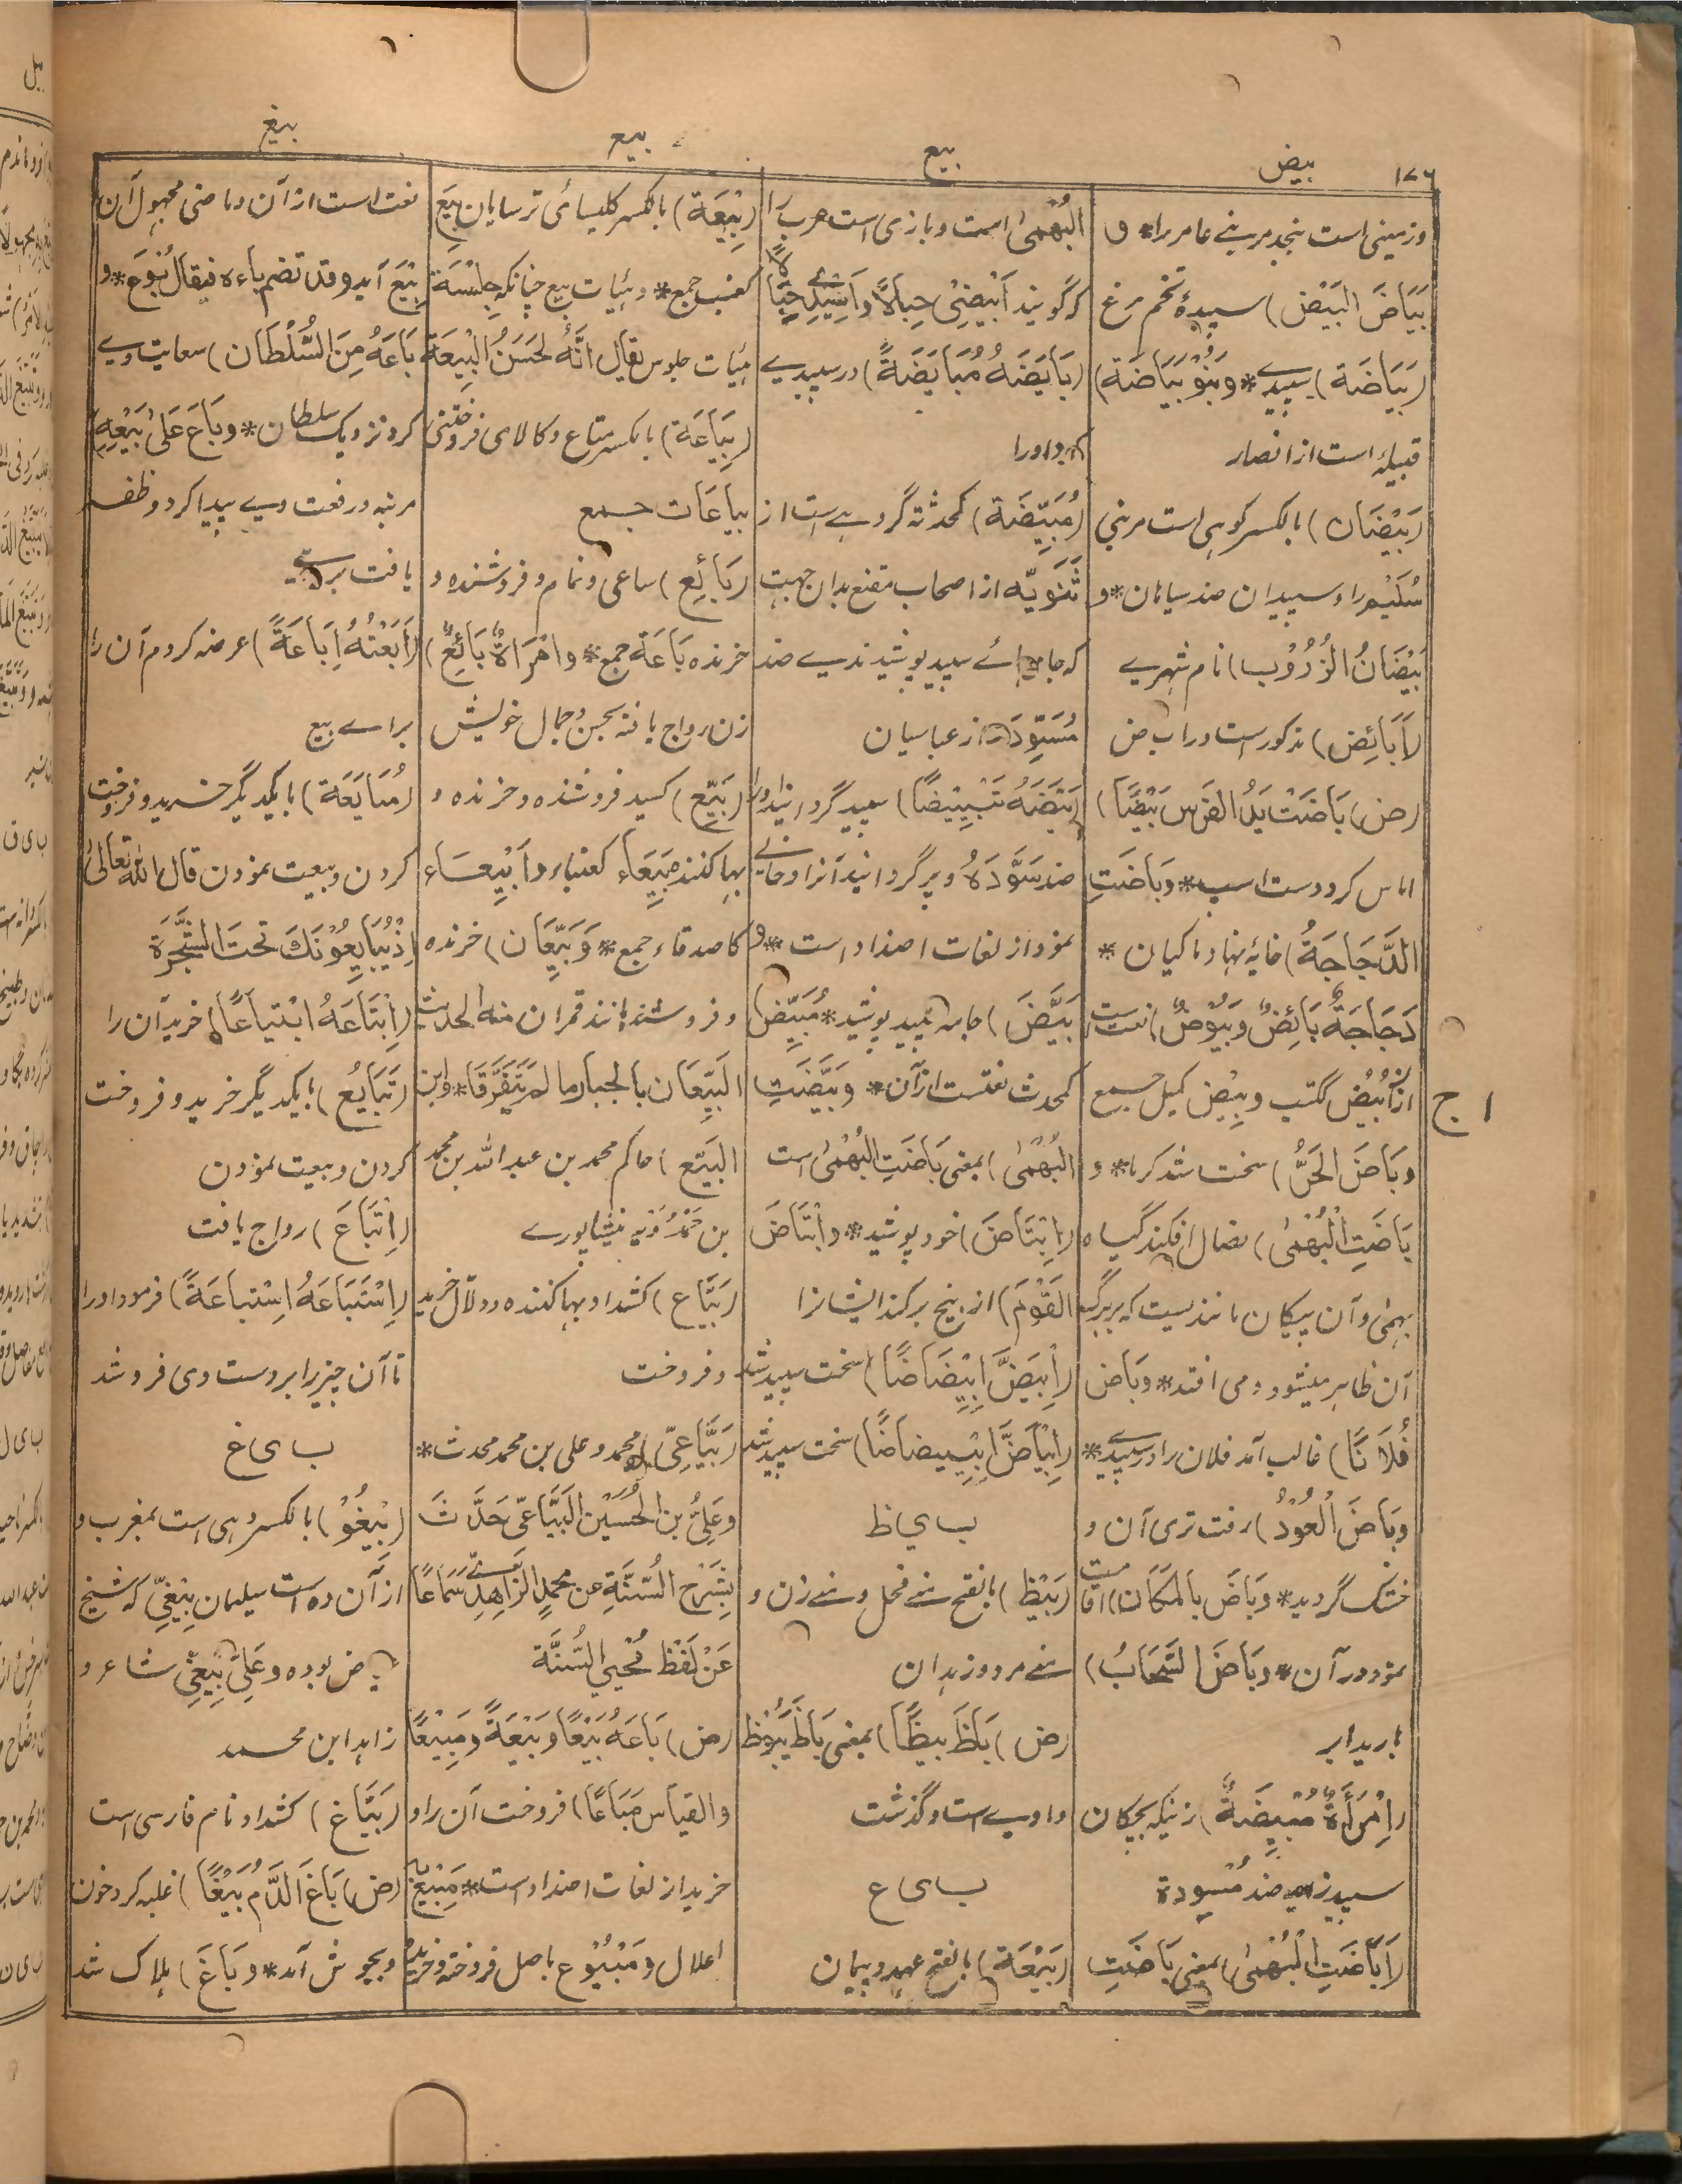 ١٧٦
بيض
بيع
بيع
بيغ
وزمینی است بنجد مر بنے عامر را* و
بَيَاضَ البَيْض) سپیدۀ تخم مرغ
(بَيَاضَة) سپیدے* وبَنُوْ بَيَاضَة)
قبیلہ است از انصار
(بَيْضَان) بالکسر کوہی است مر بنی
سُلَيْم را و سپیدان ضد سیاہان* و
بَيْضَانُ الزُّرُوْب) نام شہرے
(أَبَائِض) مذکور است در اب ض
(ض) بَاضَتْ يَدُ الفَرَس بَيْضًا)
اماس کرد دست اسپ* وبَاضَتِ
الدَّجَاجَةُ) خایہ نہاد ماکیان *
دَجَاجَةٌ بَائِضٌ وبَيُوْضٌ) نعت است
ازان بُيُضٌ ککتب وبِيْض کمیل جمع
وبَاضَ الحَرُّ) سخت شد گرما* و
بَاضَتِ الْبُهْمٰى) نصال افکند گیاہ
بہمی و آن پیکان مانندیست کہ بر برگہای
آن ظاہر میشود و می افتد* وبَاضَ
فُلَانًا) غالب آمد فلان را در سپیدے*
وبَاضَ الْعُوْدُ) رفت تری آن و
خشک گردید* وبَاضَ بالمَكَان) اقامت
نمود در آن* وبَاضَ السَّحَابُ)
بارید ابر
(امْرَأَةٌ مُبِيْضَةٌ) زنیکہ بچکان
سپید زاید ضد مُسْوِدة
(أَبَاضَتِ الْبُهْمٰى) بمعنی بَاضَتِ
البُهْمٰى است و بازی است عرب را
کہ گویند أَبِيْضِيْ حِبَالًا وأَسِيْدِيْ حِبَالًا
(بَايَضَهُ مُبَايَضَةً) در سپیدے
نبرد اورا
(مُبَيِّضَة) کمحدثة گروہے است از
ثَنَوِيّه از اصحاب مقنع بدان جہت
کہ جامہائے سپید پوشیدندے ضد
مُسَوِّدَة از عباسیان
(بَيَّضَهُ تَبْيِيْضًا) سپید گردانید اورا
ضد سَوَّدَهُ و پر گردانید آنرا و خالے
نمود از لغات اضداد است* و
بَيَّضَ) جامہ سپید پوشید* مُبَيِّضٌ
کمحدث نعتست ازان* وبَيَّضَتِ
البُهْمٰى) بمعنی بَاضَتِ البُهْمٰى است
(ابْتَاضَ) خود پوشید* وابْتَاضَ
القَوْمَ) از بیخ برکند ایشانرا
(ابْيَضَّ ابْيِضَاضًا) سخت سپید شد
(ابْيَاضَّ ابْيِيضَاضًا) سخت سپید شد
ب ي ظ
(بَيْظ) بالفتح منے فحل و منے زن و
منے مرد و زہدان
(ض) بَاظَ بَيْظًا) بمعنی بَاظَ يَبُوْظ
واوے است و گذشت
ب ی ع
(بَيْعَة) بالفتح عہد و پیمان
(بِيْعَة) بالکسر کلیسائی ترسایان بِيَعَ
کعنب جمع* و ہئیات بیع چنانکہ جِلْسَة
ہئیات جلوس یقال انّهُ لحَسَنُ الْبِيْعَة
(بِيَاعَة) بالکسر متاع و کالای فروختنی
بیاعَات جمع
(بَائِع) ساعی و نمام و فروشندہ و
خرندہ بَاعَة جمع* وامْرَأَةٌ بَائِعٌ)
زن رواج یافتہ بحسن و جمال خویش
(بَيِّع) کسید فروشندہ و خرندہ و
بہا کنند بُيَعَاء کعنباء و أَبْيِعَاء
کاصدقاء جمع* وَبَيِّعَان) خرندہ
و فروشندہ مانند قمران منه الحدیث
البَيِّعَان بالخيار ما لم يَتَفَرَّقَا* وابن
البَيِّع) حاکم محمد بن عبداللہ بن محمد
بن حَمْدُوَيْهِ نیشاپورے
(بَيَّاع) کشداد بہا کنندہ و دلّال خرید
و فروخت
(بَيَّاعِيّ) محمد و علی بن محمد محدث*
وعَلِيُّ بن الحُسَيْن البَيَّاعِيّ حَدَّثَ
بِشَرْحِ السُّنَّةِ عن محمدٍ الزّاهِدِيّ سَمَاعًا
عَنْ لَفْظ مُحْيِي السُّنَّة
(ض) بَاعَهُ بَيْعًا وبَيْعَةً ومَبِيْعًا
والقیاس مَبَاعًا) فروخت آن را و
خرید از لغات اضداد است* مَبِيْع
اعلال ومَبْيُوْع باصل فروختہ و خریدہ
نعت است از آن و ماضی مجہول آن
بِيْعَ آید وقد تضم باءه فیقال بُوْعَ* و
بَاعَهُ مِنَ السُّلْطَان) سعایت وے
کرد نزدیک سلطان* وبَاعَ عَلىٰ بَيْعِهِ)
مرتبہ و رفعت وے پیدا کرد و ظفر
یافت بروے
(أَبَعْتُهُ إبَاعَةً) عرضہ کردم آن را
براے بیع
(مُبَايَعَة) بایکدیگر خرید و فروخت
کردن و بیعت نمودن قال اللہ تعالیٰ
اِذْ يُبَايِعُوْنَكَ تحتَ الشَّجَرَة
(ابْتَاعَهُ ابْتيَاعًا) خرید آن را
(تَبَايُع) بایکدیگر خرید و فروخت
کردن و بیعت نمودن
(انْبَاعَ) رواج یافت
(اسْتَبَاعَهُ اسْتِباعَةً) فرمود اورا
تا آن چیز را بر دست وی فروشد
ب ی غ
(بِيْغُوْ) بالکسر دہی است بمغرب و
از آن دہ است سلیمان بِيْغِيّ کہ شیخ
بوده وعَلِيّ بِيْغِيّ شاعر و
زاہد ابن محمد
(بَيَّاغ) کشداد نام فارسی است
(ض) بَاغَ الدَّمُ بَيْغًا) غلبہ کرد خون
و بجوش آمد* وبَاغَ) ہلاک شد
ا ج